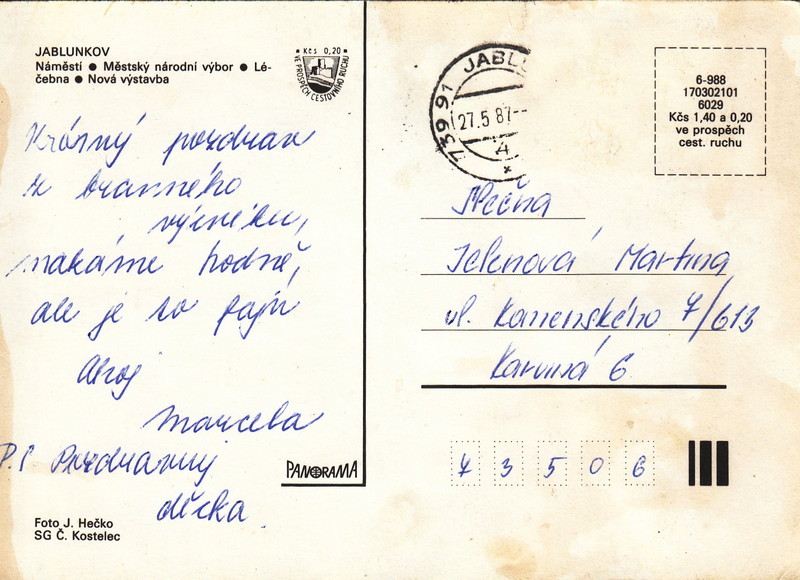 JABLUNKOV
Náměstí ● Městský národní výbor ● Lé-
čebna ● Nová výstavba
Kčs 0,20
VE PROSPĚCH CESTOVNÍHO RUCHU
Krásný pozdrav
z branného
výcviku,
makáme hodně,
ale je to fajn
Ahoj
Marcela
P.S Pozdravuj
děcka.
PANORAMA
Foto J. Hečko
SG Č. Kostelec
739 91 JABLU
27.5.87--
4
*
6-988
170302101
6029
Kčs 1,40 a 0,20
ve prospěch
cest. ruchu
Slečna
Jelenová Martina
ul. Kamenského 7/613
Karviná 6
7 3 5 0 6